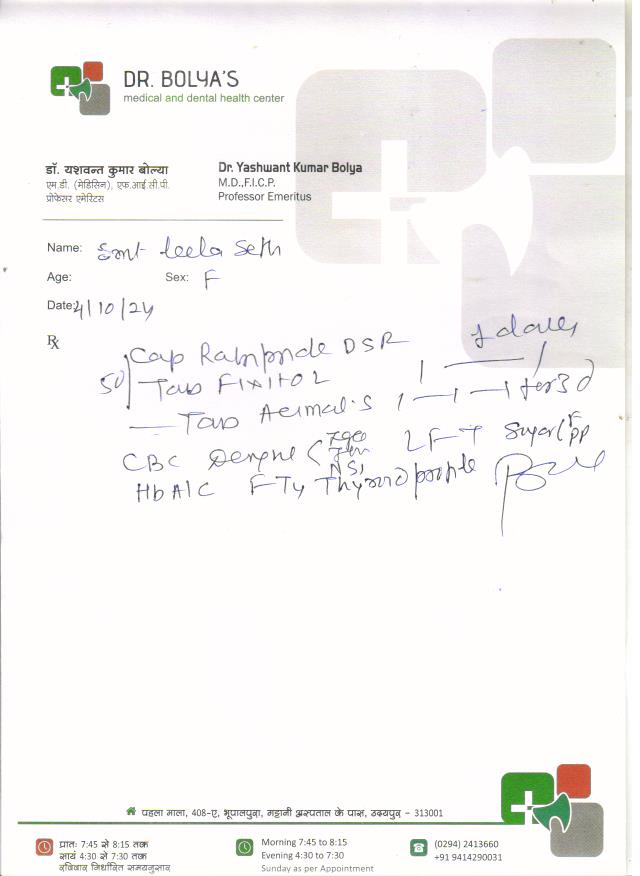 DR. BOLYA'S
medical and dental health center
डॉ. यशवन्त कुमार बोल्या
एम.डी. (मेडिसिन), एफ.आई.सी.पी.
प्रोफेसर एमेरिटस
Dr. Yashwant Kumar Bolya
M.D.,F.I.C.P.
Professor Emeritus
Name: Smt Leela Seth
Age: Sex: F
Date: 4/10/24
Rx
Cap DSR
Tab
Tab 1—1—1 for 3 d
CBC LFT Sugar
HbA1C
पहला माला, 408-ए, भूपालपुरा, भट्टानी अस्पताल के पास, उदयपुर - 313001
प्रातः 7:45 से 8:15 तक
सायं 4:30 से 7:30 तक
रविवार निर्धारित समयनुसार
Morning 7:45 to 8:15
Evening 4:30 to 7:30
Sunday as per Appointment
(0294) 2413660
+91 9414290031